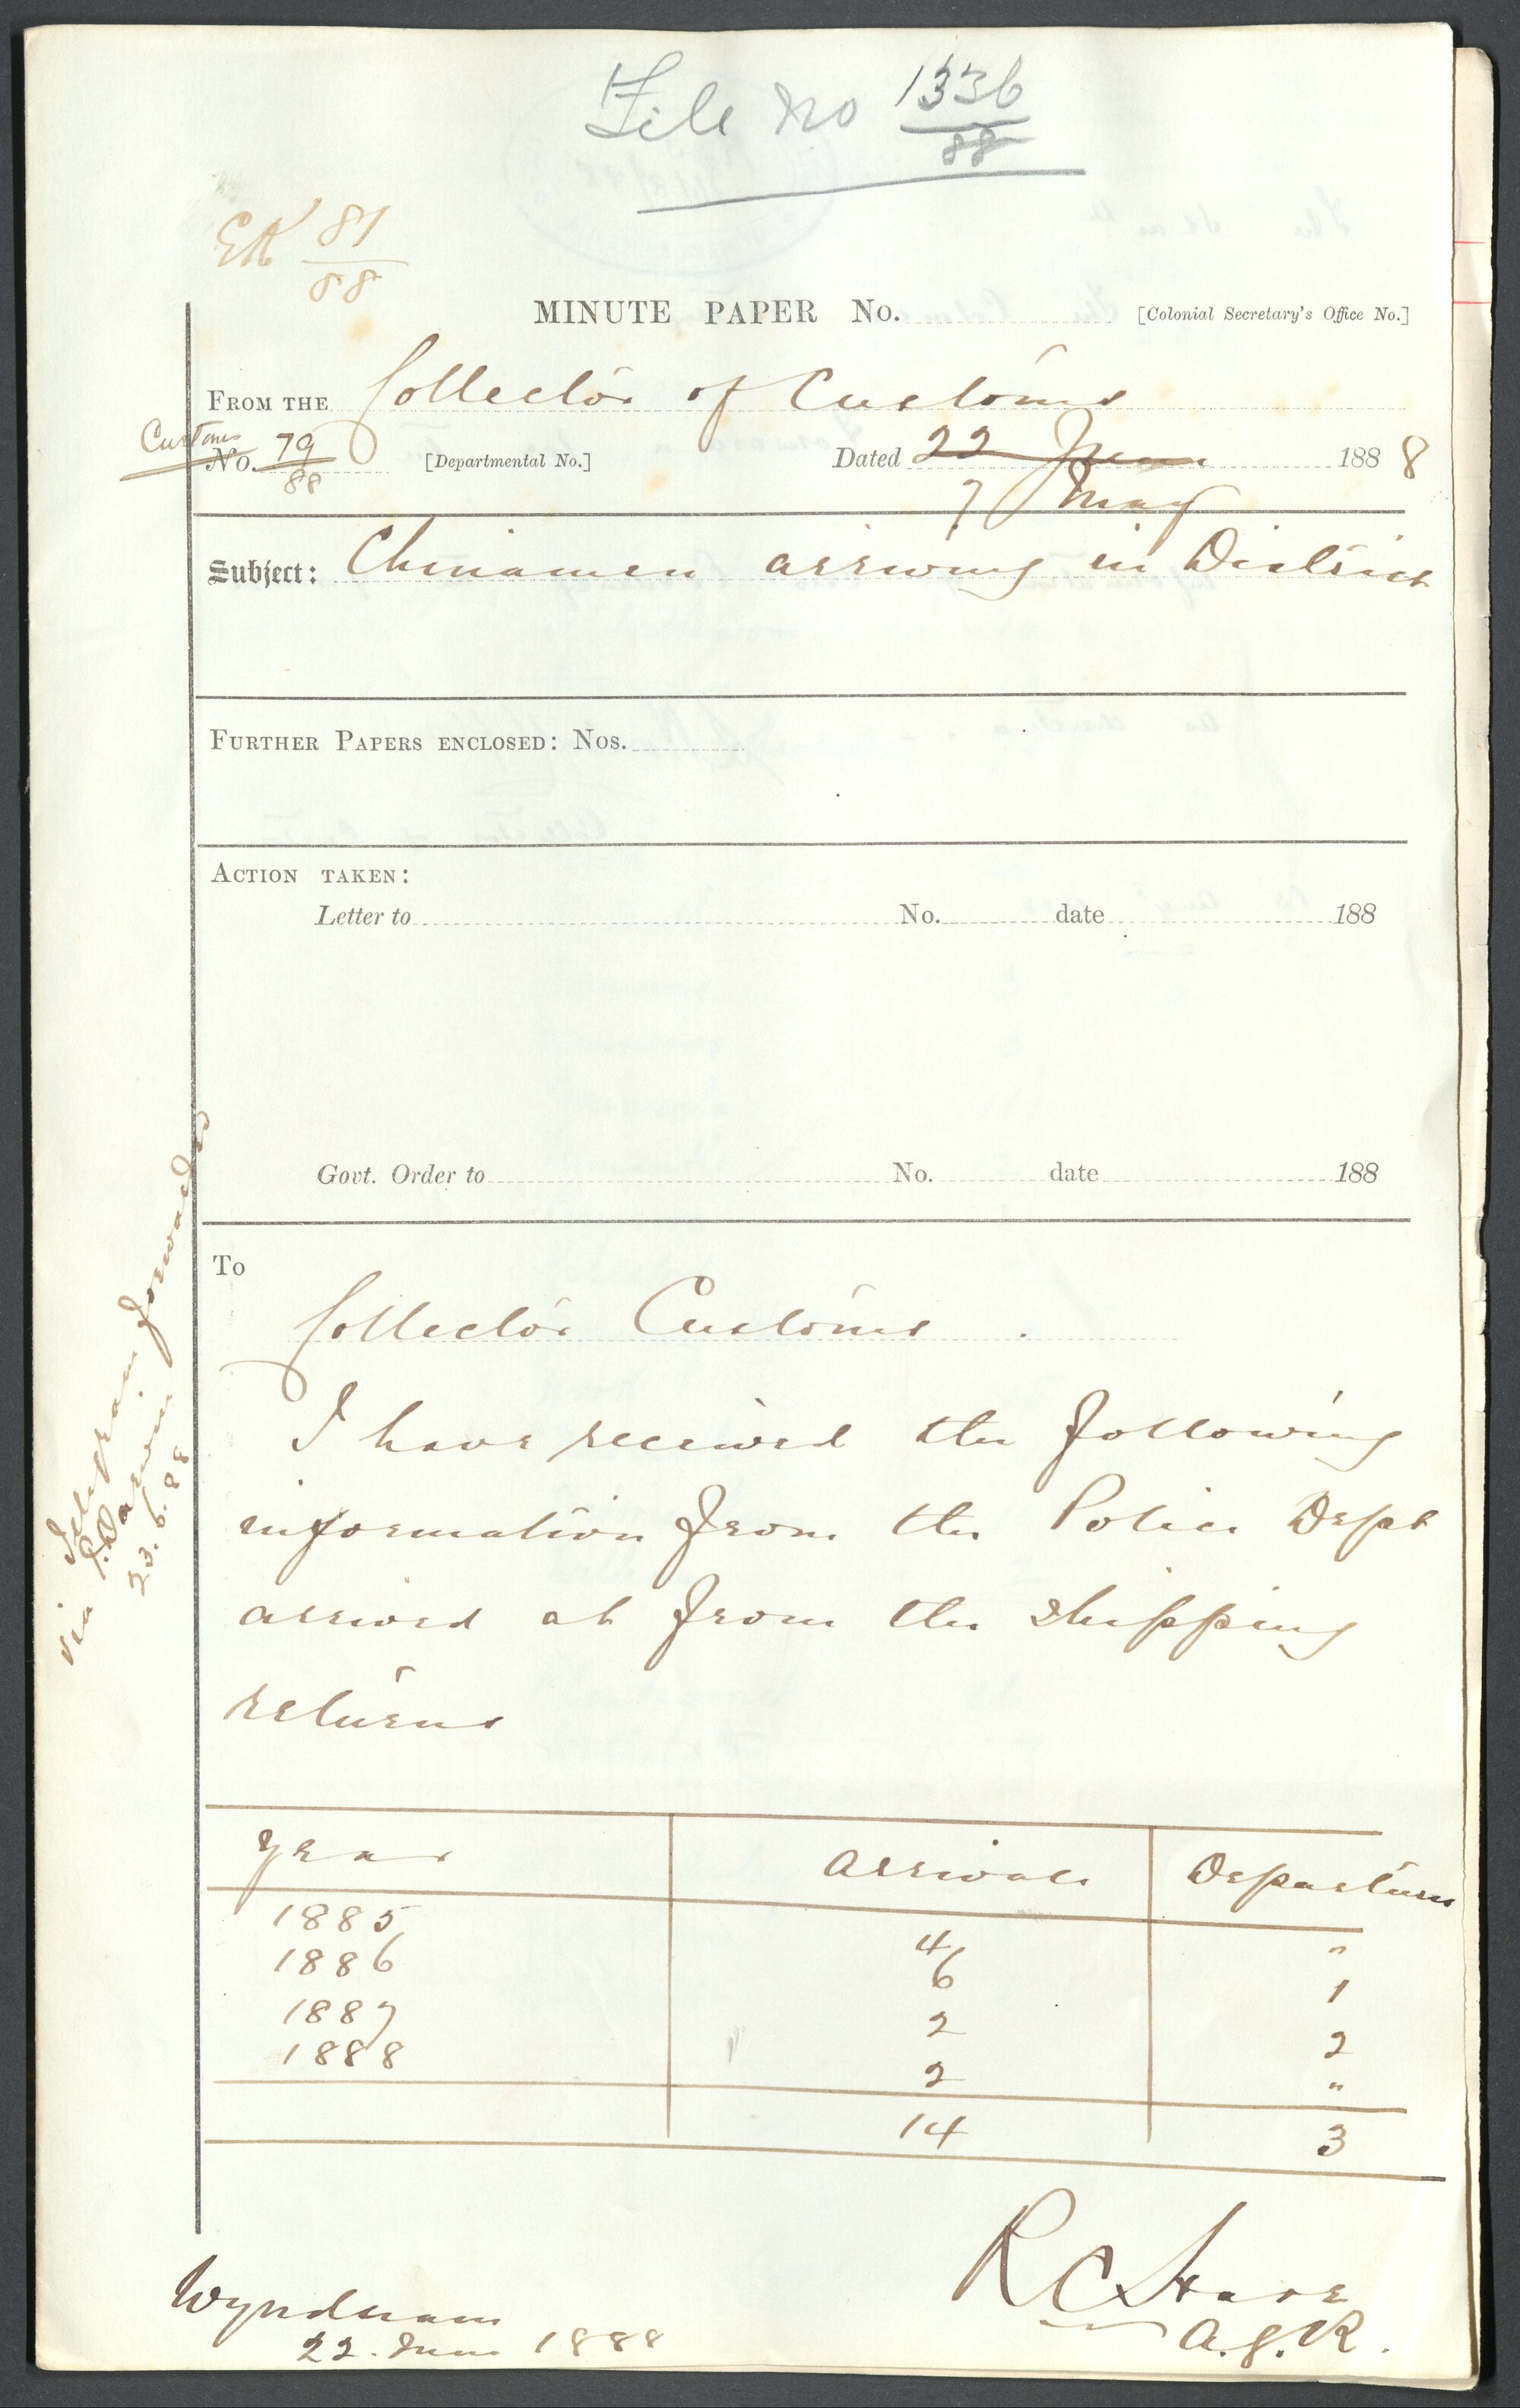 File No 1336
88
EK 81
88
MINUTE PAPER No. [Colonial Secretary's Office No.]
FROM THE Collector of Customs
Customs
No. 79 [Departmental No.] Dated 22 June 1888
88
7 May
Subject: Chinamen arriving in District
FURTHER PAPERS ENCLOSED: Nos.
ACTION TAKEN:
Letter to No. date 188
Govt. Order to No. date 188
To
Collector Customs.
I have received the following
information from the Police Dept
arrived at from the shipping
returns
Year Arrivals Departures
1885 4 "
1886 6 1
1887 2 2
1888 2 "
14 3
R C Hare
A.G.R.
Wyndham
22. June 1888
Telegram forwarded
via P. Darwin
23.6.88